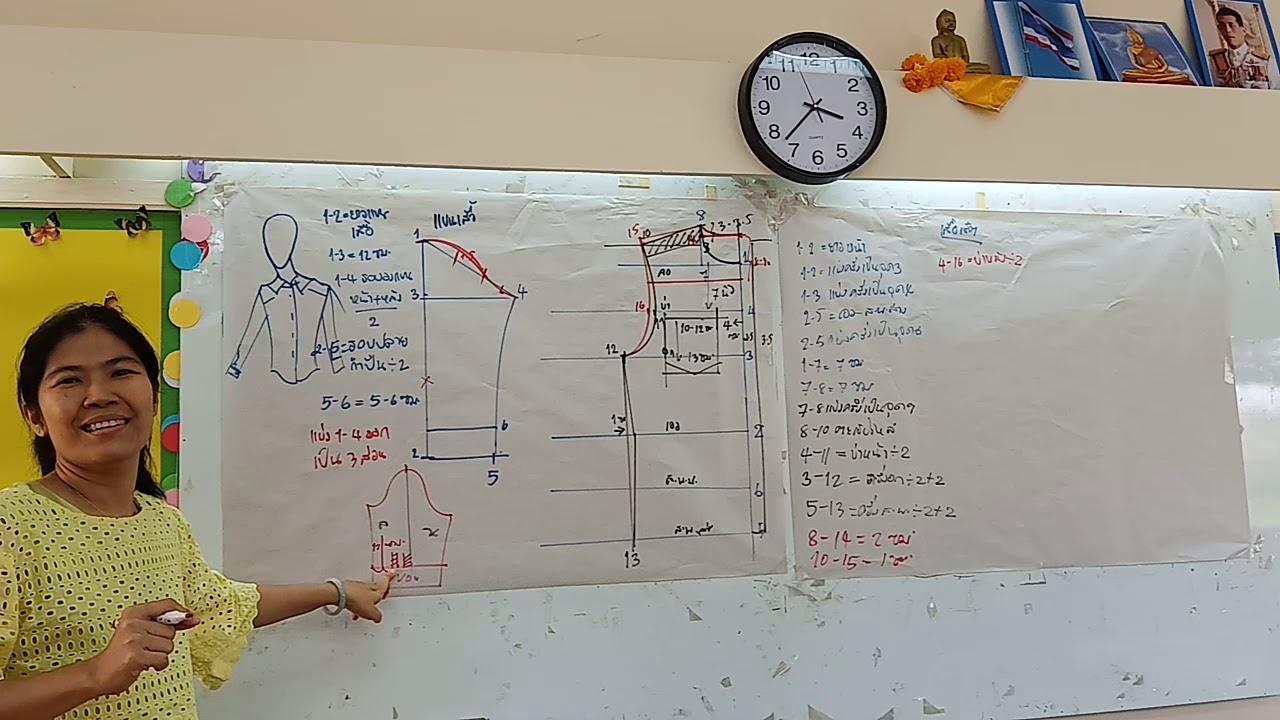 12
11
10
9
8
7
6
5
4
3
2
QUARTZ
1-2 = ยาวแขน
เสื้อ
1-3 = 12 ซม
1-4 รอบวงแขน
หน้า+หลัง
2
2-5 = รอบปลาย
กำปั้น÷2
5-6 = 5-6 ซม
แบ่ง 1-4 ออก
เป็น 3 ส่วน
แขนเสื้อ
1
3
4
2
6
5
15
10
8
16
7 นิ้ว
10-12 ซ
4
13 ซม
12
3
3.5
เอว
2
6
5
13
1-2 = ยาวหน้า
1-2 = แบ่งครึ่งเป็นจุด 3
1-3 แบ่งครึ่งเป็นจุด 4
2-5 = เอว-สะโพก
2-5 แบ่งครึ่งเป็นจุด 6
1-7 = 7 ซม
7-8 = 7 ซม
7-8 แบ่งครึ่งเป็นจุด 9
4-11 = บ่าหน้า÷2
3-12 = รอบอก÷2+2
8-14 = 2 ซม
10-15 = 1 ซม
4-16 = บ่าหลัง÷2